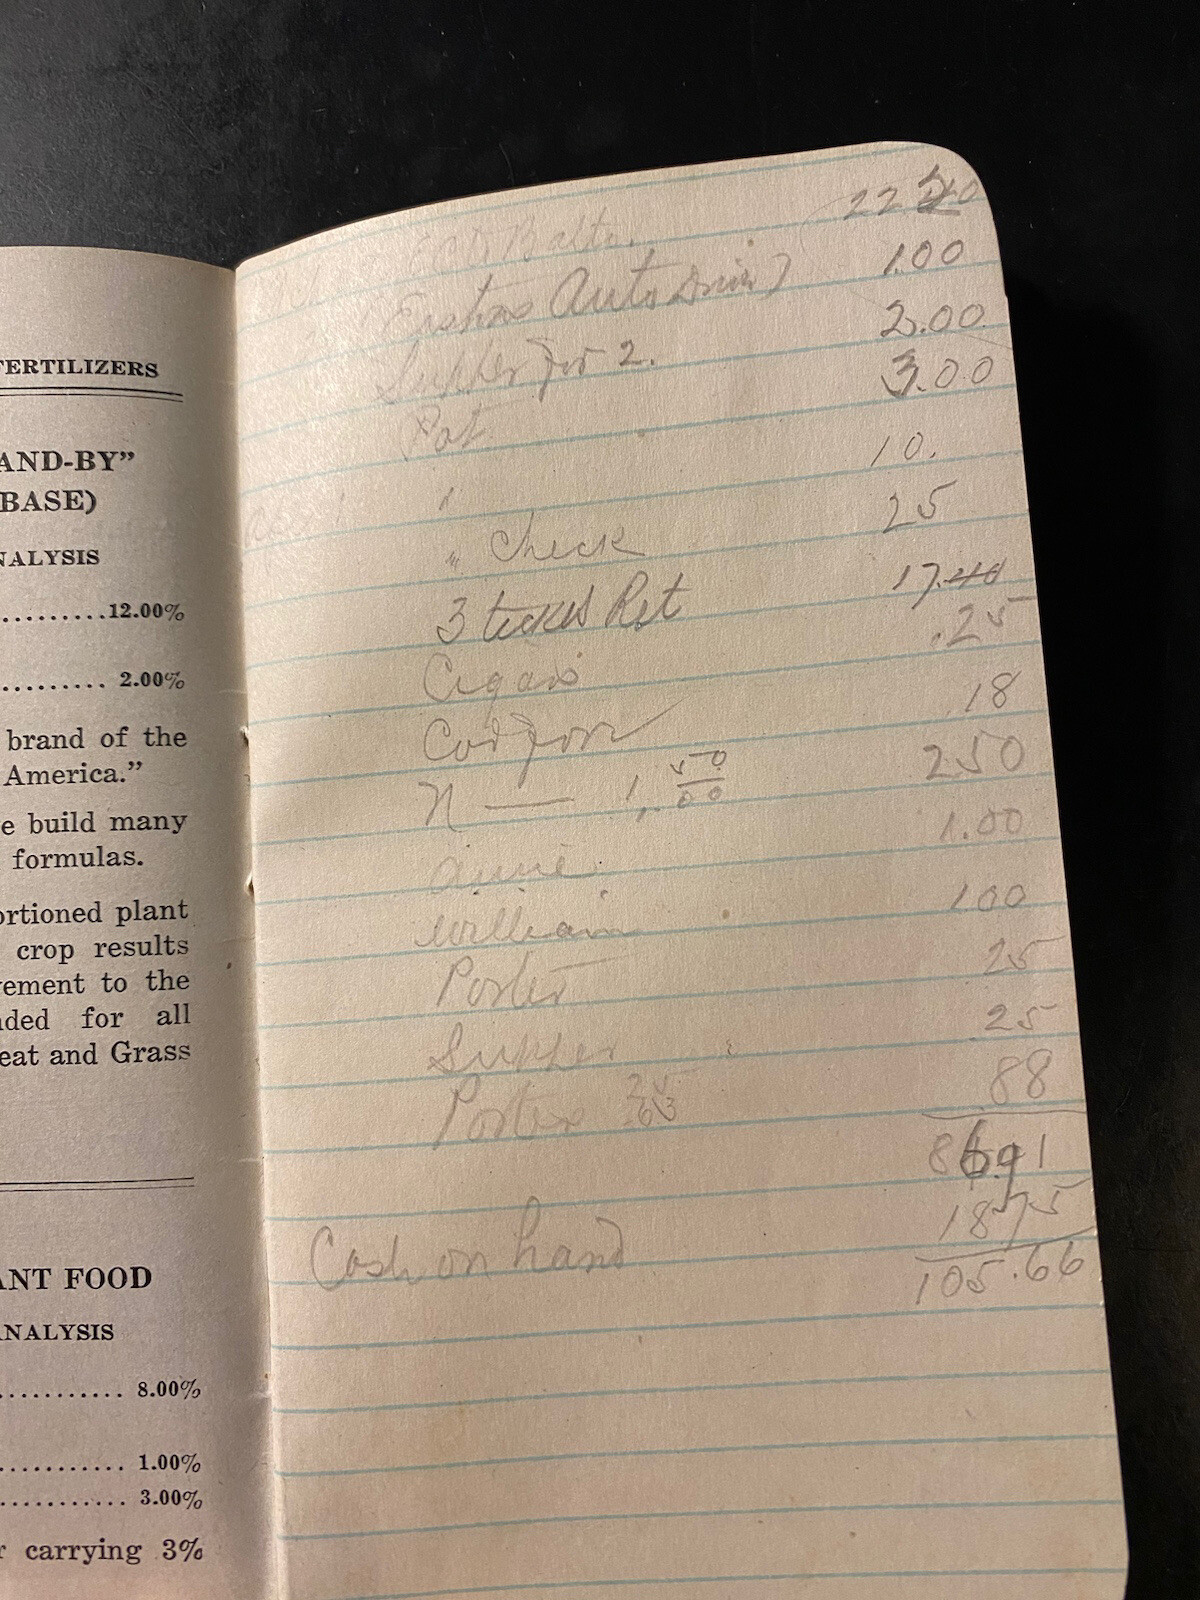 FERTILIZERS
AND-BY”
BASE)
NALYSIS
.........12.00%
.......... 2.00%
brand of the
America.”
e build many
formulas.
ortioned plant
crop results
vement to the
nded for all
eat and Grass
ANT FOOD
ANALYSIS
........... 8.00%
........... 1.00%
........... 3.00%
r carrying 3%
Balto. 22
Auto 1.00
Supper for 2. 2.00
Pat 3.00
" 10.
" Check 25
3 tickets Ret 17.40
Cigars .25
18
N — 1. 50/00 250
Annie 1.00
William 100
Porter 25
Supper 25
Porter 88
86.91
Cash on hand 18.75
105.66